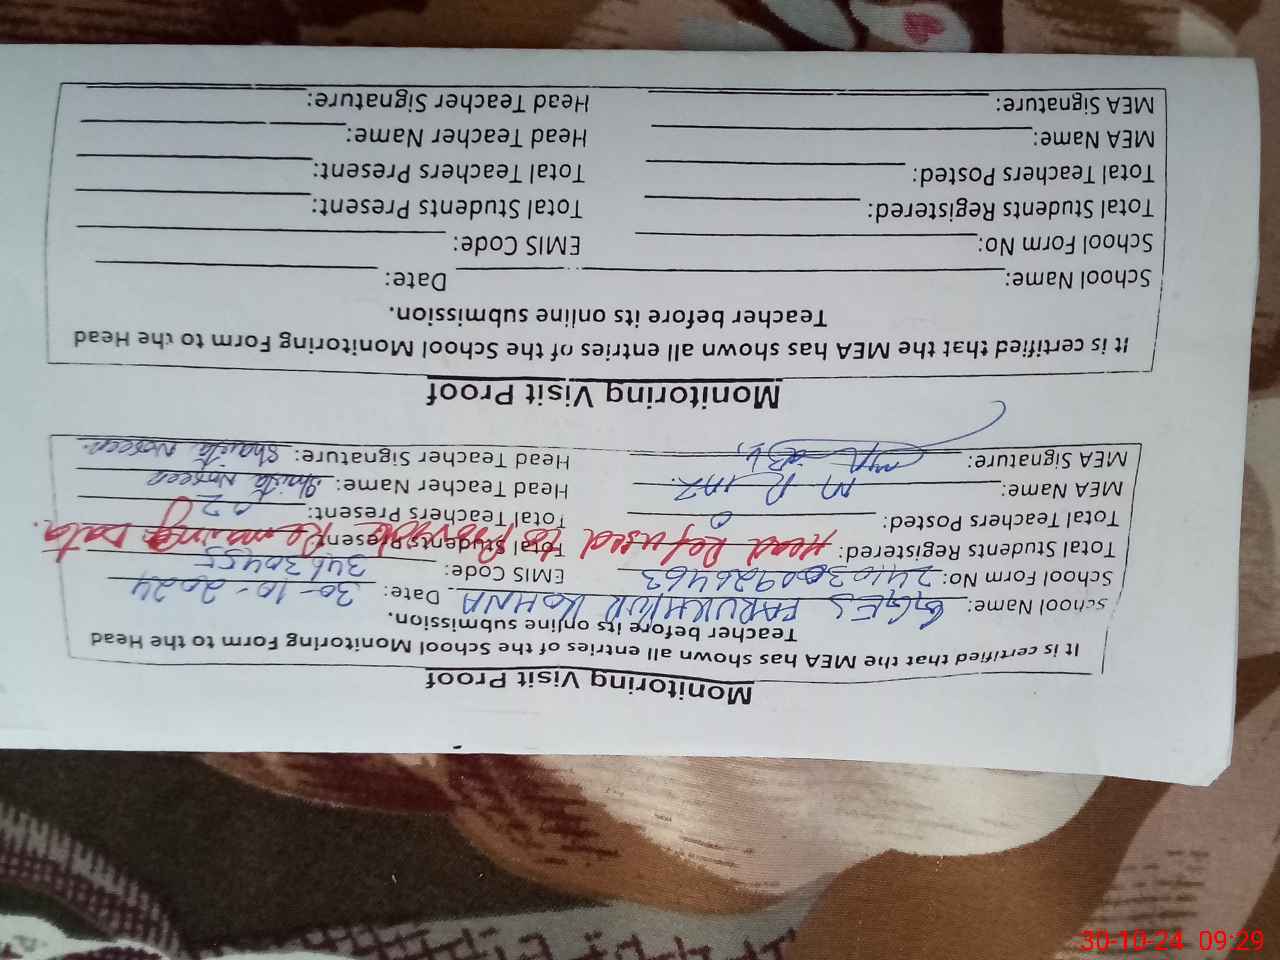 Monitoring Visit Proof
It is certified that the MEA has shown all entries of the School Monitoring Form to the Head
Teacher before its online submission.
School Name: GGES FARUKHPUR KOHNA Date: 30-10-2024
School Form No: EMIS Code:
Total Students Registered: Total Students Present:
Head Refused to Provide Remaining Data.
Total Teachers Posted: Total Teachers Present: 02
MEA Name: M Riaz Head Teacher Name: Shaista Noreen
MEA Signature: Head Teacher Signature: Shaista Noreen
Monitoring Visit Proof
It is certified that the MEA has shown all entries of the School Monitoring Form to the Head
Teacher before its online submission.
School Name: Date:
School Form No: EMIS Code:
Total Students Registered: Total Students Present:
Total Teachers Posted: Total Teachers Present:
MEA Name: Head Teacher Name:
MEA Signature: Head Teacher Signature:
30-10-24 09:29